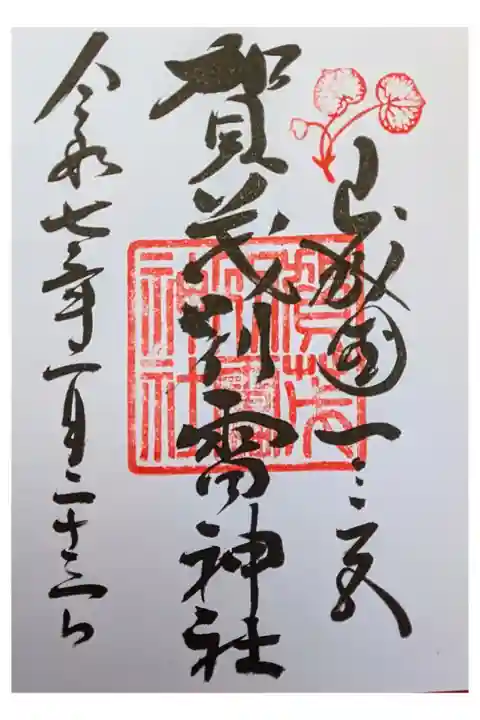 山城国一之宮
賀茂別雷神社
賀茂別雷神社
令和七年一月二十三日